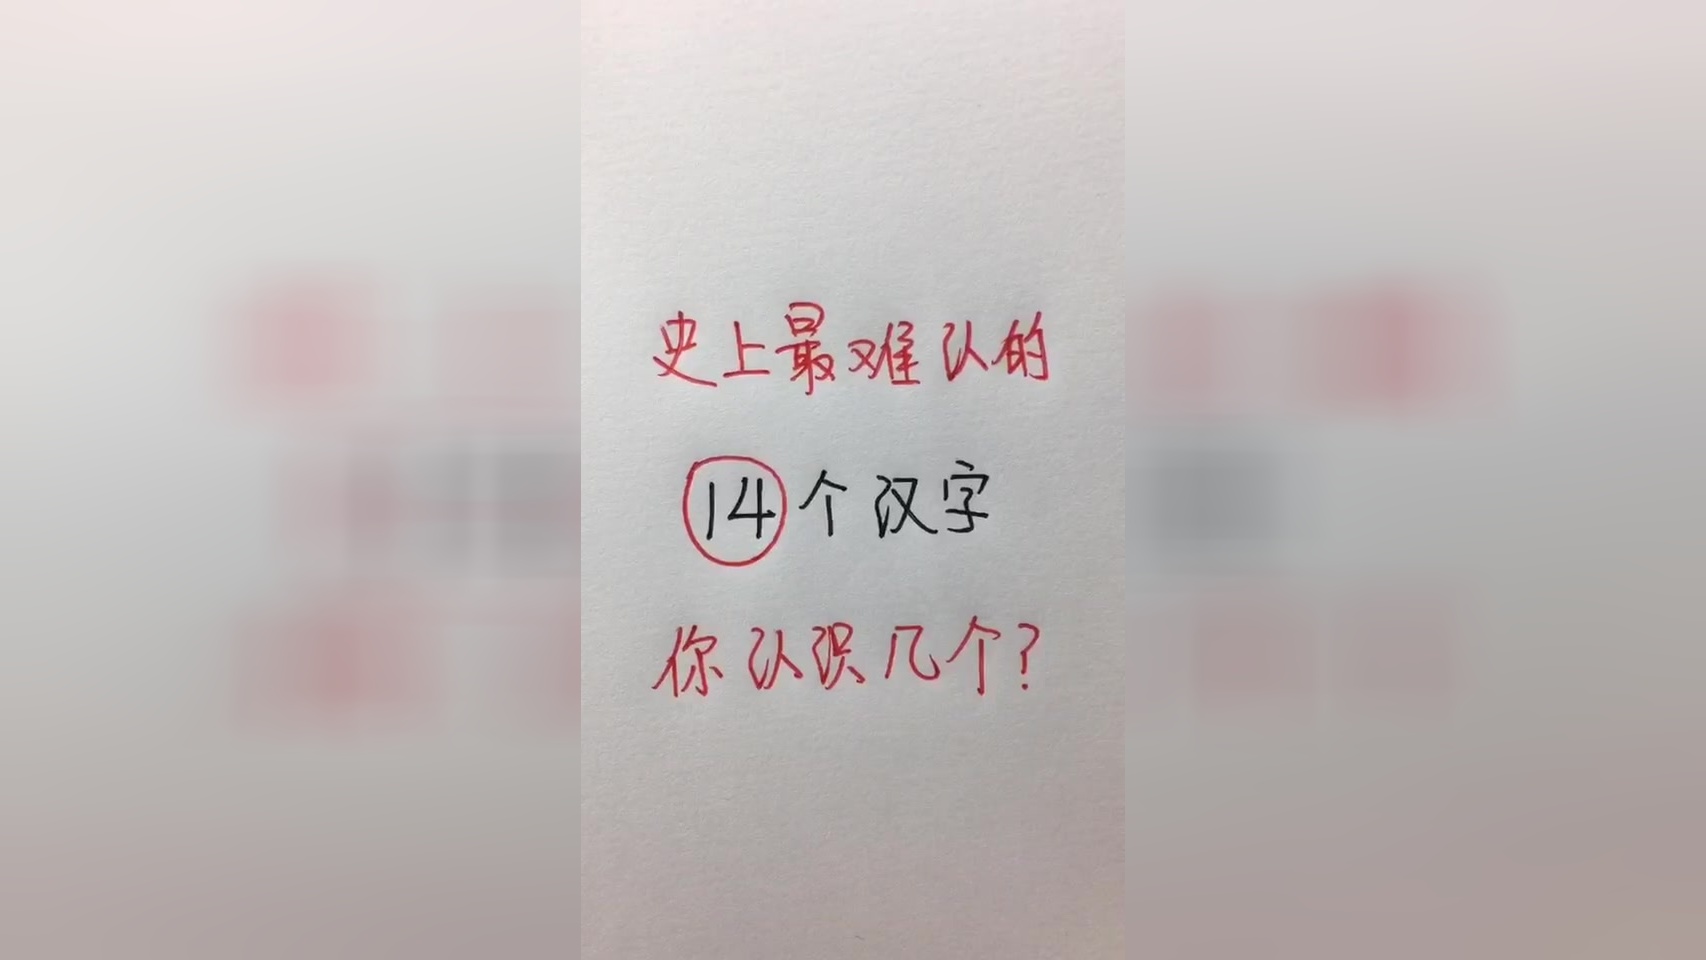 史上最难认的
14个汉字
你认识几个?